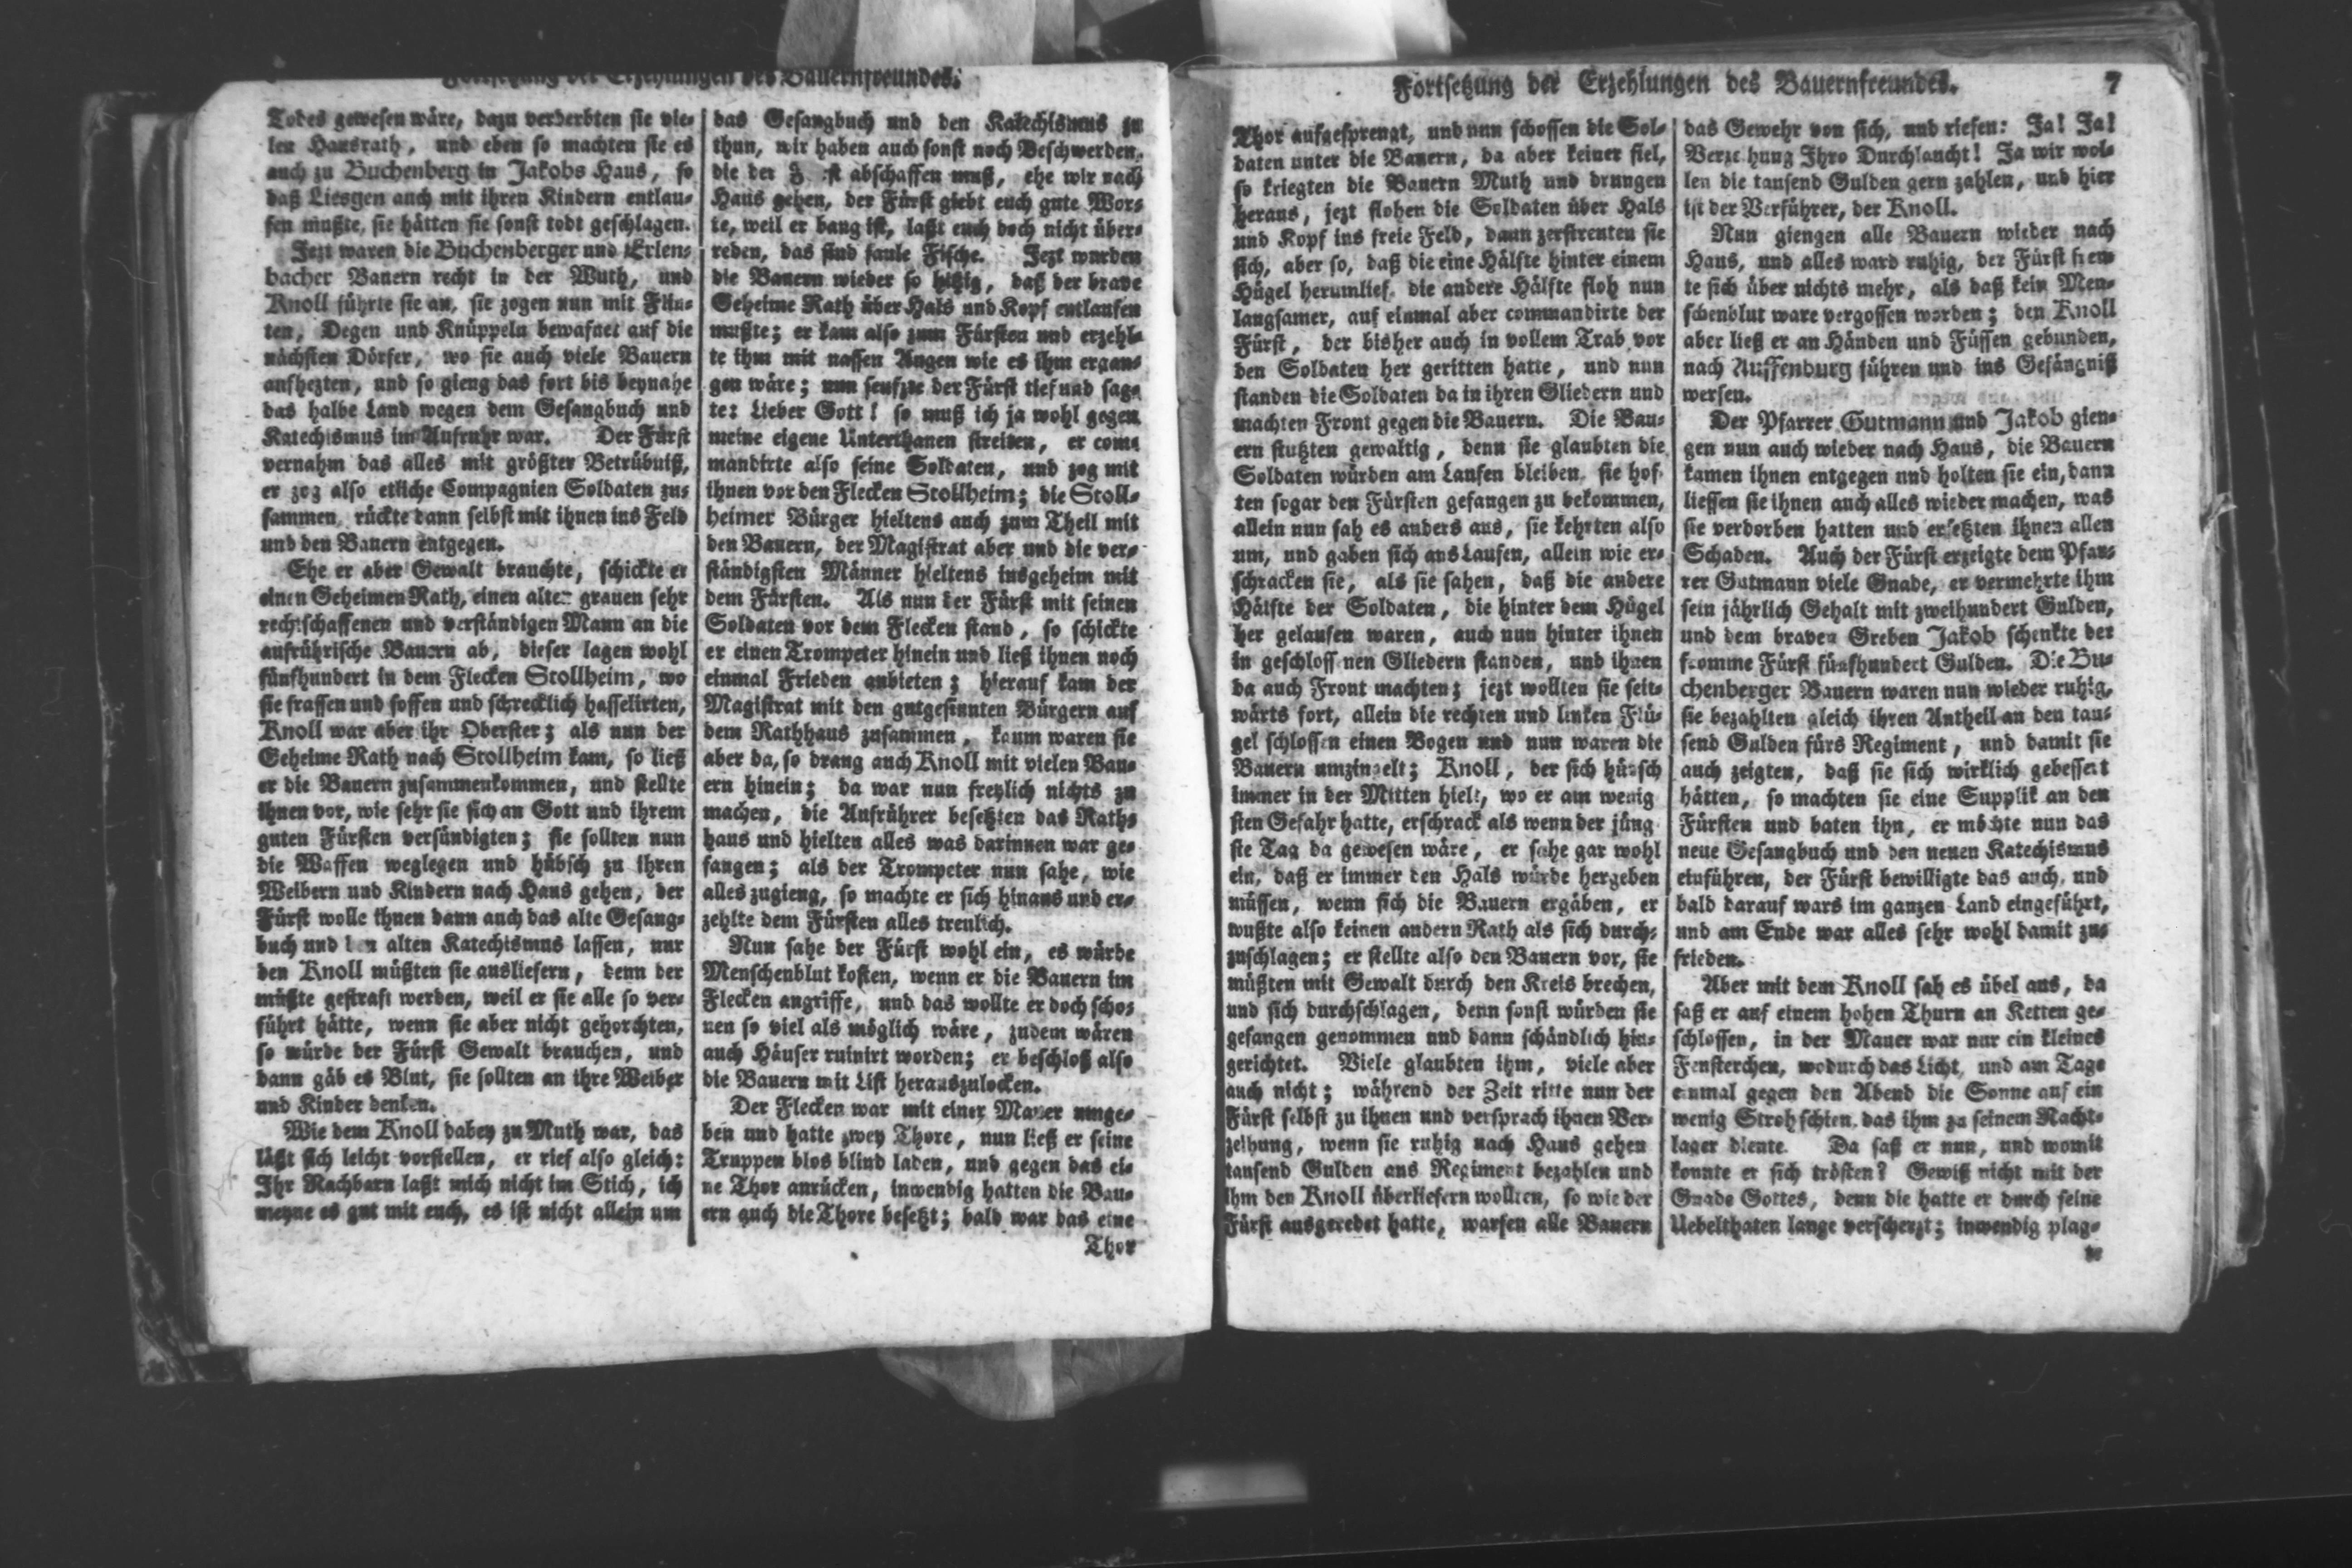 Fortsetzung der Erzehlungen des Bauernfreundes.
Todes gewesen wäre, dazu verderbten sie vie-
len Hausrath, und eben so machten sie es
auch zu Buchenberg in Jakobs Haus, so
daß Liesgen auch mit ihren Kindern entlau-
fen mußte, sie hätten sie sonst todt geschlagen.
Jezt waren die Buchenberger und Erlen-
bacher Bauern recht in der Wuth, und
Knoll führte sie an, sie zogen nun mit Flin-
ten, Degen und Knüppeln bewafnet auf die
nächsten Dörfer, wo sie auch viele Bauern
aufhezten, und so gieng das fort bis beynahe
das halbe Land wegen dem Gesangbuch und
Katechismus im Aufruhr war. Der Fürst
vernahm das alles mit größter Betrübniß,
er zog also etliche Compagnien Soldaten zu-
sammen, rückte dann selbst mit ihnen ins Feld
und den Bauern entgegen.
Ehe er aber Gewalt brauchte, schickte er
einen Geheimen Rath, einen alten grauen sehr
rechtschaffenen und verständigen Mann an die
aufrührische Bauern ab, dieser lagen wohl
fünfhundert in dem Flecken Stollheim, wo
sie frassen und soffen und schrecklich hasselirten,
Knoll war aber ihr Oberster; als nun der
Geheime Rath nach Stollheim kam, so ließ
er die Bauern zusammenkommen, und stellte
ihnen vor, wie sehr sie sich an Gott und ihrem
guten Fürsten versündigten; sie sollten nun
die Waffen weglegen und hübsch zu ihren
Weibern und Kindern nach Haus gehen, der
Fürst wolle ihnen dann auch das alte Gesang-
buch und den alten Katechismus lassen, nur
den Knoll müßten sie ausliefern, denn der
müßte gestraft werden, weil er sie alle so ver-
führt hätte, wenn sie aber nicht gehorchten,
so würde der Fürst Gewalt brauchen, und
dann gäb es Blut, sie sollten an ihre Weiber
und Kinder denken.
Wie dem Knoll dabey zu Muth war, das
läßt sich leicht vorstellen, er rief also gleich:
Ihr Nachbarn laßt mich nicht im Stich, ich
meyne es gut mit euch, es ist nicht allein um
das Gesangbuch und den Katechismus zu
thun, wir haben auch sonst noch Beschwerden,
die der Fürst abschaffen muß, ehe wir nach
Haus gehen, der Fürst giebt euch gute Wor-
te, weil er bang ist, laßt euch doch nicht über-
reden, das sind faule Fische. Jezt wurden
die Bauern wieder so hitzig, daß der brave
Geheime Rath über Hals und Kopf entlaufen
mußte; er kam also zum Fürsten und erzehl-
te ihm mit nassen Augen wie es ihm ergan-
gen wäre; nun seufzte der Fürst tief und sag-
te: Lieber Gott! so muß ich ja wohl gegen
meine eigene Unterthanen streiten, er com-
mandirte also seine Soldaten, und zog mit
ihnen vor den Flecken Stollheim; die Stoll-
heimer Bürger hieltens auch zum Theil mit
den Bauern, der Magistrat aber und die ver-
ständigsten Männer hieltens insgeheim mit
dem Fürsten. Als nun der Fürst mit seinen
Soldaten vor dem Flecken stand, so schickte
er einen Trompeter hinein und ließ ihnen noch
einmal Frieden anbieten; hierauf kam der
Magistrat mit den gutgesinnten Bürgern auf
dem Rathhaus zusammen, kaum waren sie
aber da, so drang auch Knoll mit vielen Bau-
ern hinein; da war nun freylich nichts zu
machen, die Aufrührer besetzten das Rath-
haus und hielten alles was darinnen war ge-
fangen; als der Trompeter nun sahe, wie
alles zugieng, so machte er sich hinaus und er-
zehlte dem Fürsten alles treulich.
Nun sahe der Fürst wohl ein, es würde
Menschenblut kosten, wenn er die Bauern im
Flecken angriffe, und das wollte er doch scho-
nen so viel als möglich wäre, zudem wären
auch Häuser ruinirt worden; er beschloß also
die Bauern mit List herauszulocken.
Der Flecken war mit einer Mauer umge-
ben und hatte zwey Thore, nun ließ er seine
Truppen blos blind laden, und gegen das ei-
ne Thor anrücken, inwendig hatten die Bau-
ern auch die Thore besetzt; bald war das eine
Thor
Fortsetzung der Erzehlungen des Bauernfreundes. 7
Thor aufgesprengt, und nun schossen die Sol-
daten unter die Bauern, da aber keiner fiel,
so kriegten die Bauern Muth und drungen
heraus, jezt flohen die Soldaten über Hals
und Kopf ins freie Feld, dann zerstreuten sie
sich, aber so, daß die eine Hälfte hinter einem
Hügel herumlief, die andere Hälfte floh nun
langsamer, auf einmal aber commandirte der
Fürst, der bisher auch in vollem Trab vor
den Soldaten her geritten hatte, und nun
standen die Soldaten da in ihren Gliedern und
machten Front gegen die Bauern. Die Bau-
ern stutzten gewaltig, denn sie glaubten die
Soldaten würden am Laufen bleiben, sie hof-
ten sogar den Fürsten gefangen zu bekommen,
allein nun sah es anders aus, sie kehrten also
um, und gaben sich ans Laufen, allein wie er-
schracken sie, als sie sahen, daß die andere
Hälfte der Soldaten, die hinter dem Hügel
her gelaufen waren, auch nun hinter ihnen
in geschlossenen Gliedern standen, und ihnen
da auch Front machten; jezt wollten sie seit-
wärts fort, allein die rechten und linken Flü-
gel schlossen einen Bogen und nun waren die
Bauern umzingelt; Knoll, der sich hübsch
immer in der Mitten hielt, wo er am wenig
sten Gefahr hatte, erschrack als wenn der jüng
ste Tag da gewesen wäre, er sahe gar wohl
ein, daß er immer den Hals würde hergeben
müssen, wenn sich die Bauern ergäben, er
wußte also keinen andern Rath als sich durch-
zuschlagen; er stellte also den Bauern vor, sie
müßten mit Gewalt durch den Kreis brechen,
und sich durchschlagen, denn sonst würden sie
gefangen genommen und dann schändlich hin-
gerichtet. Viele glaubten ihm, viele aber
auch nicht; während der Zeit ritte nun der
Fürst selbst zu ihnen und versprach ihnen Ver-
zeihung, wenn sie ruhig nach Haus gehen
tausend Gulden ans Regiment bezahlen und
ihm den Knoll überliefern wollten, so wie der
Fürst ausgeredet hatte, warfen alle Bauern
das Gewehr von sich, und riefen: Ja! Ja!
Verzeihung Ihro Durchlaucht! Ja wir wol-
len die tausend Gulden gern zahlen, und hier
ist der Verführer, der Knoll.
Nun giengen alle Bauern wieder nach
Haus, und alles ward ruhig, der Fürst freu-
te sich über nichts mehr, als daß kein Men-
schenblut ware vergossen worden; den Knoll
aber ließ er an Händen und Füssen gebunden,
nach Auffenburg führen und ins Gefängniß
werfen.
Der Pfarrer Gutmann und Jakob gien-
gen nun auch wieder nach Haus, die Bauern
kamen ihnen entgegen und holten sie ein, dann
liessen sie ihnen auch alles wieder machen, was
sie verdorben hatten und ersetzten ihnen allen
Schaden. Auch der Fürst erzeigte dem Pfar-
rer Gutmann viele Gnade, er vermehrte ihm
sein jährlich Gehalt mit zweihundert Gulden,
und dem braven Greben Jakob schenkte der
fromme Fürst fünfhundert Gulden. Die Bu-
chenberger Bauern waren nun wieder ruhig,
sie bezahlten gleich ihren Antheil an den tau-
send Gulden fürs Regiment, und damit sie
auch zeigten, daß sie sich wirklich gebessert
hätten, so machten sie eine Supplik an den
Fürsten und baten ihn, er möchte nun das
neue Gesangbuch und den neuen Katechismus
einführen, der Fürst bewilligte das auch, und
bald darauf wars im ganzen Land eingeführt,
und am Ende war alles sehr wohl damit zu-
frieden.
Aber mit dem Knoll sah es übel aus, da
saß er auf einem hohen Thurn an Ketten ge-
schlossen, in der Mauer war nur ein kleines
Fensterchen, wodurch das Licht, und am Tage
einmal gegen den Abend die Sonne auf ein
wenig Stroh schien, das ihm zu seinem Nacht-
lager diente. Da saß er nun, und womit
konnte er sich trösten? Gewiß nicht mit der
Gnade Gottes, denn die hatte er durch seine
Uebelthaten lange verscherzt; inwendig plag-
te